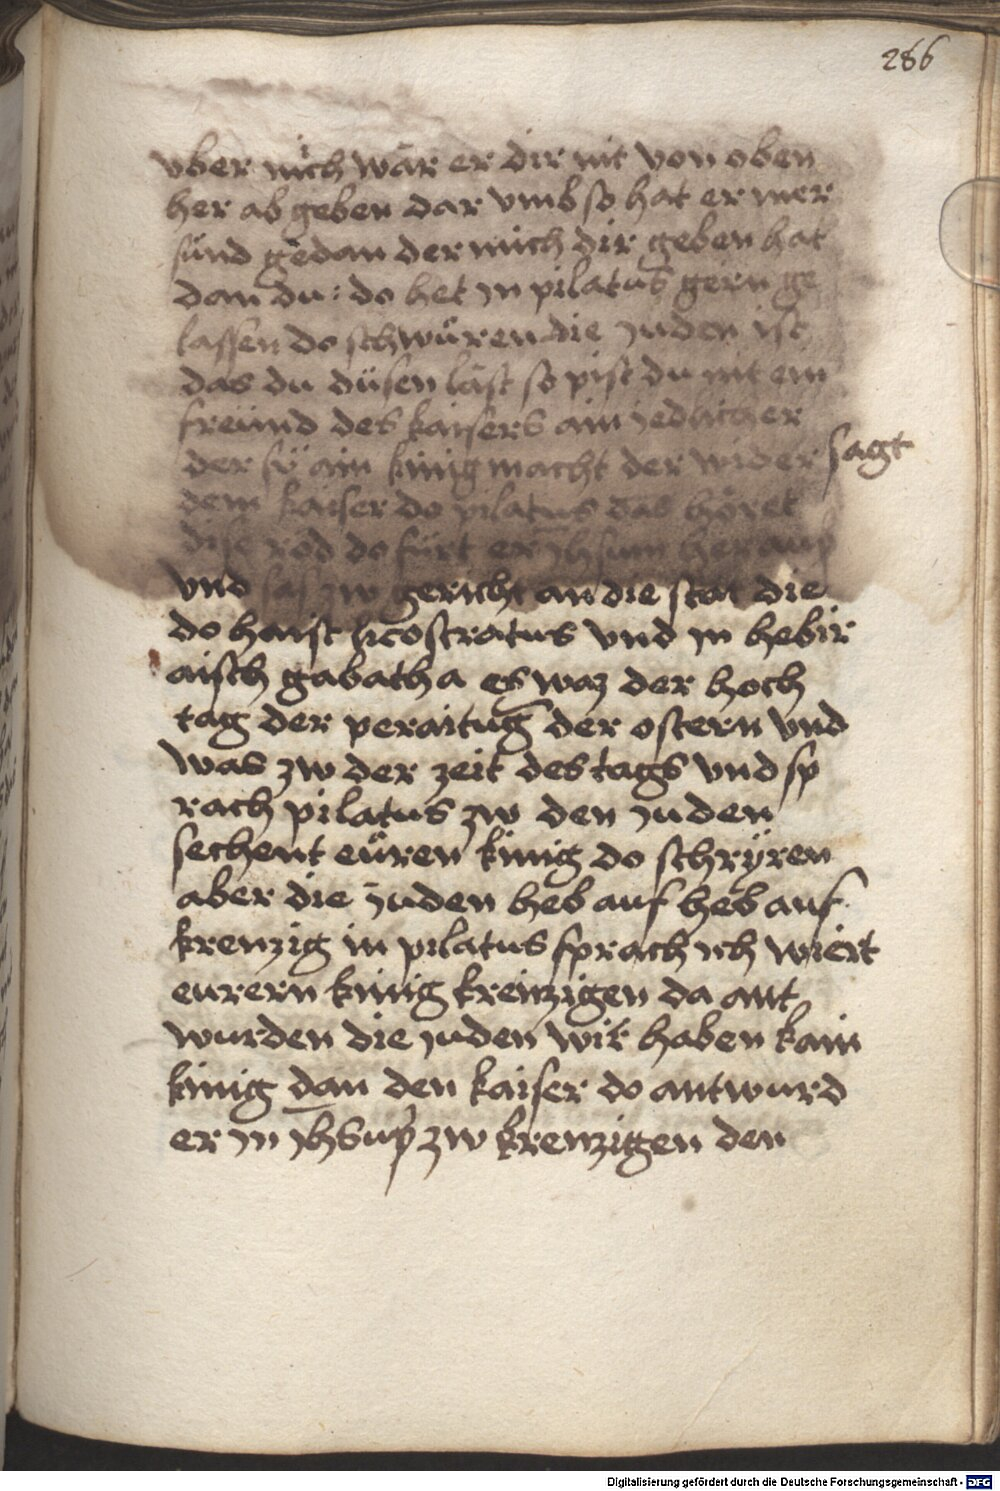 286
vber mich wär er dir nit von oben
her ab geben dar vmb so hat er mer
sünd gedan der mich dir geben hat
dan du : do het jn pilatus gern ge
lassen do schwüren die juden ist
das du düsen läst so pist du nit ein
freünd des kaisers ain jedlicher
der sü ain kinig macht der wider sagt
dem kaiser do pilatus das höret
dise röd do fürt er jhsum her auß
vnd saß zw gericht an die stat die
do haist licostratus vnd jn hebir
aisch gabatha es waz der hoch
tag der peraitug der ostern vnd
was zw der zeit des tags vnd sp
rach pilatus zw den juden
sechent eüren kinig do schryren
aber die juden heb auf heb auf
krenzig in pilatus sprach ich wiert
eurern kinig kreinzigen da ant
wurden die juden wir haben kain
kinig dan den kaiser do antwurd
er jn jhsup zw krenzigen den
Digitalisierung gefördert durch die Deutsche Forschungsgemeinschaft - DFG